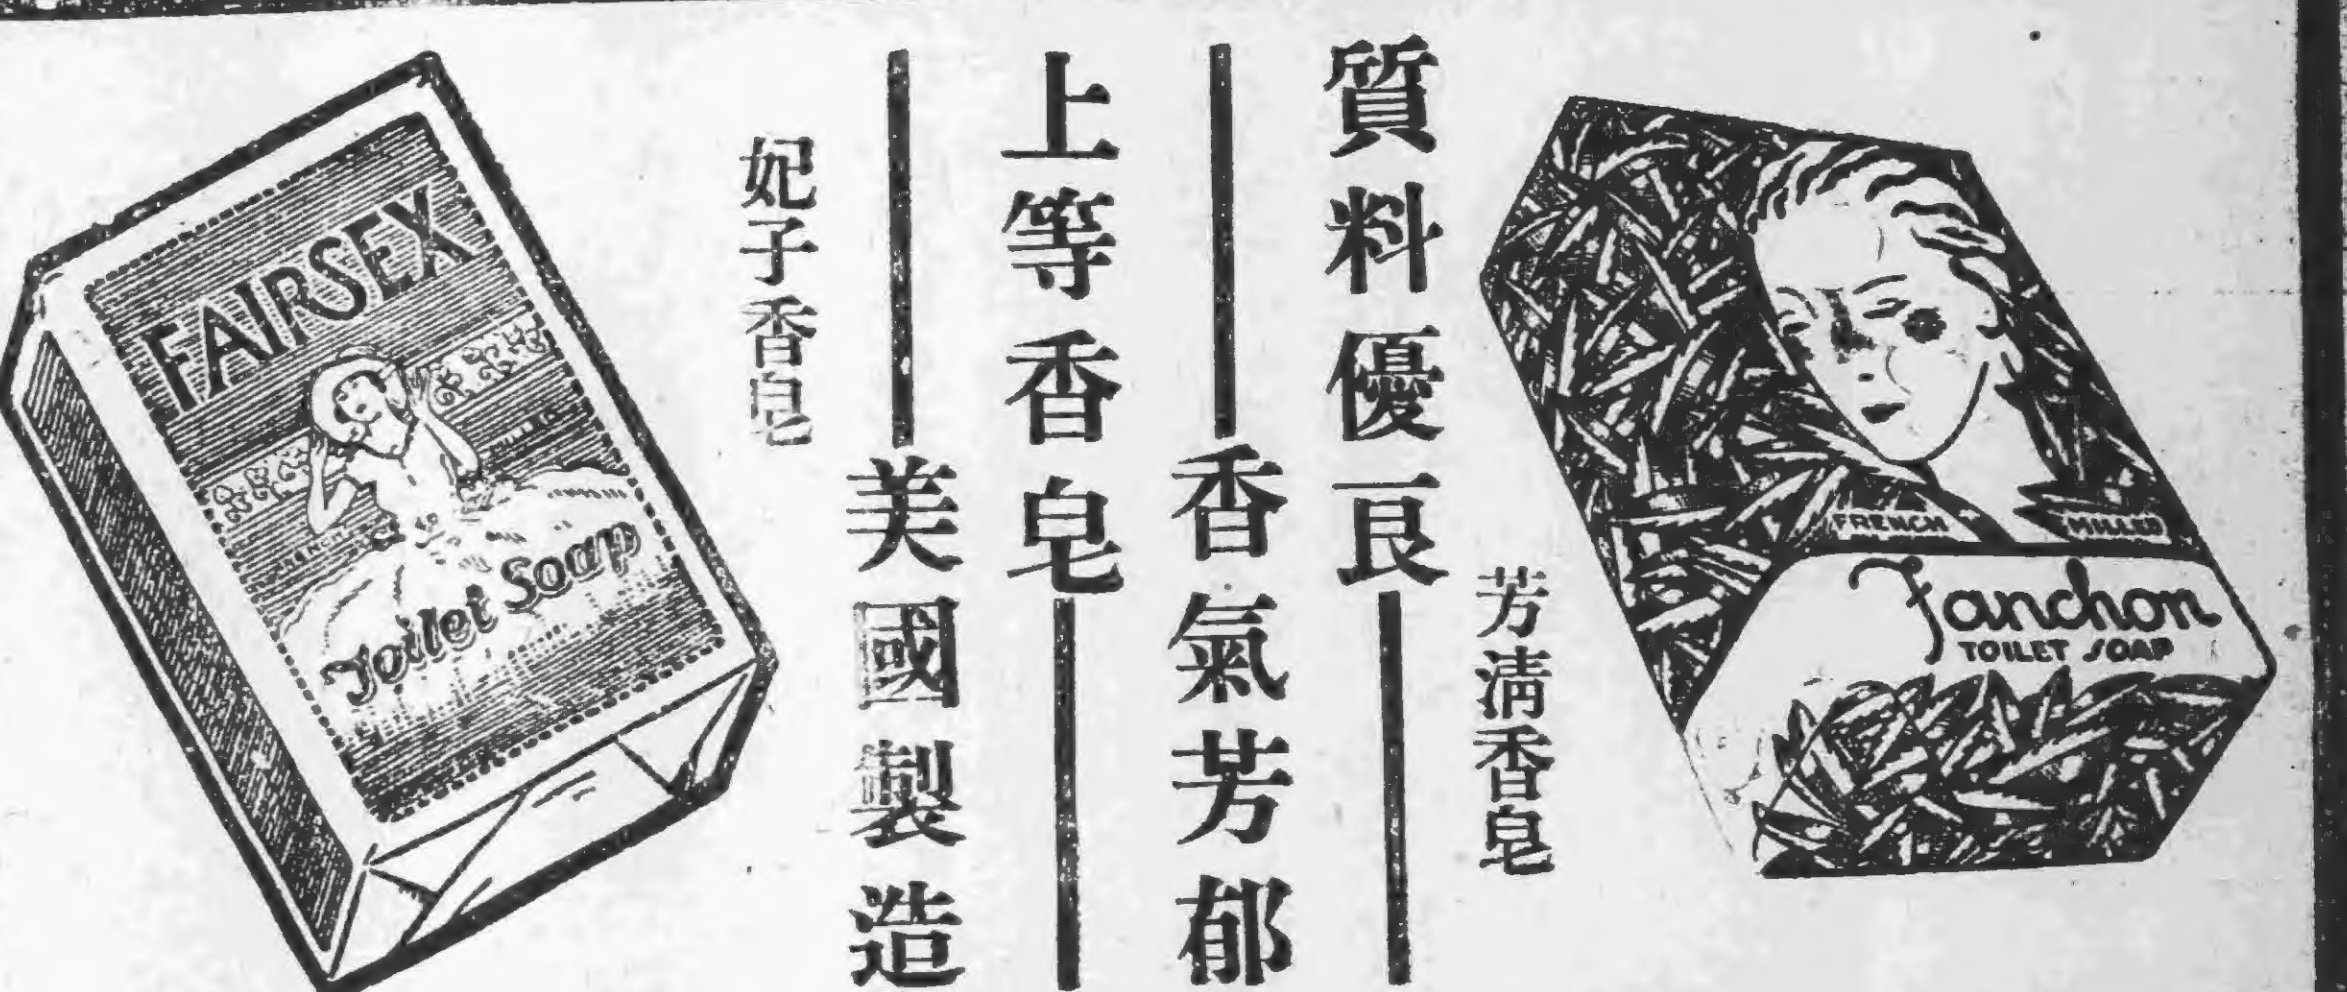 FRENCH MILLED
Fanchon
TOILET SOAP
芳清香皂
質料優良
香氣芳郁
上等香皂
美國製造
妃子香皂
FAIRSEX
Toilet Soap